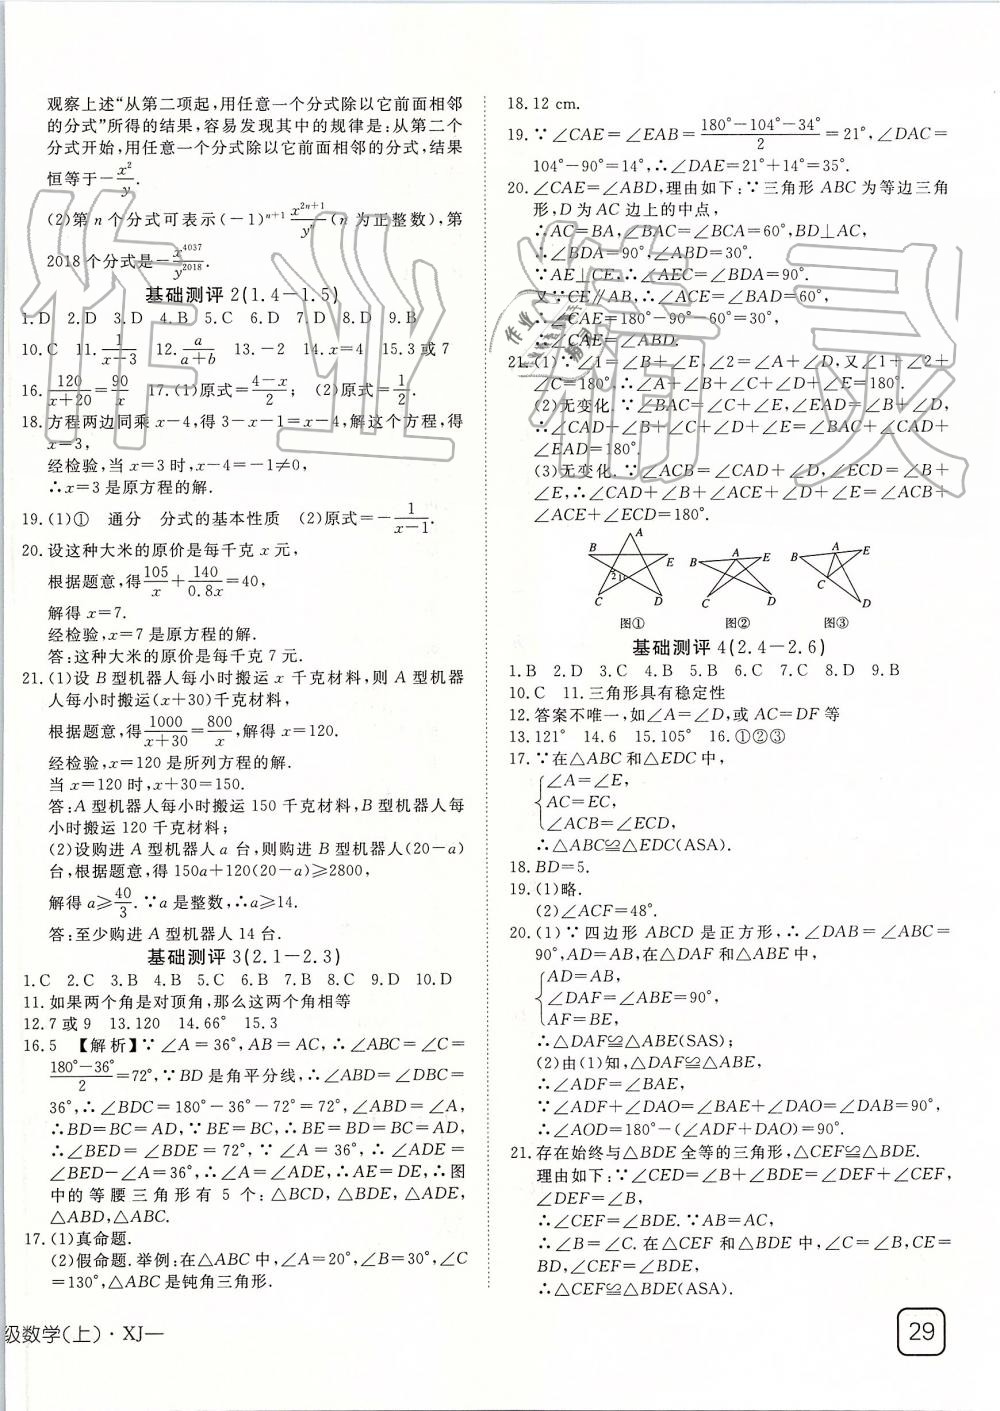 观察上述“从第二项起,用任意一个分式除以它前面相邻
的分式”所得的结果,容易发现其中的规律是:从第二个
分式开始,用任意一个分式除以它前面相邻的分式,结果
恒等于-x²/y.
(2)第 n 个分式可表示(-1)ⁿ⁺¹ x²ⁿ⁺¹/yⁿ(n 为正整数),第
2018 个分式是-x⁴⁰³⁷/y²⁰¹⁸.
基础测评 2(1.4-1.5)
1.D 2.D 3.D 4.B 5.C 6.D 7.D 8.D 9.B
10.C 11.1/(x-3) 12.a/(a+b) 13.-2 14.x=4 15.3 或 7
16.120/(x+20)=90/x 17.(1)原式=(4-x)/2; (2)原式=1/2.
18.方程两边同乘 x-4,得 3-x-1=x-4,解这个方程,得
x=3,
经检验,当 x=3 时,x-4=-1≠0,
∴x=3 是原方程的解.
19.(1)① 通分 分式的基本性质 (2)原式=-1/(x-1).
20.设这种大米的原价是每千克 x 元,
根据题意,得105/x+140/0.8x=40,
解得 x=7.
经检验,x=7 是原方程的解.
答:这种大米的原价是每千克 7 元.
21.(1)设 B 型机器人每小时搬运 x 千克材料,则 A 型机器
人每小时搬运(x+30)千克材料,
根据题意,得1000/(x+30)=800/x,解得 x=120.
经检验,x=120 是所列方程的解.
当 x=120 时,x+30=150.
答:A 型机器人每小时搬运 150 千克材料,B 型机器人每
小时搬运 120 千克材料;
(2)设购进 A 型机器人 a 台,则购进 B 型机器人(20-a)
台,根据题意,得 150a+120(20-a)≥2800,
解得 a≥40/3.∵a 是整数,∴a≥14.
答:至少购进 A 型机器人 14 台.
基础测评 3(2.1-2.3)
1.C 2.C 3.B 4.B 5.C 6.B 7.B 8.C 9.D 10.D
11.如果两个角是对顶角,那么这两个角相等
12.7 或 9 13.120 14.66° 15.3
16.5 【解析】∵∠A=36°,AB=AC,∴∠ABC=∠C=
(180°-36°)/2=72°,∵BD 是角平分线,∴∠ABD=∠DBC=
36°,∴∠BDC=180°-36°-72°=72°,∠ABD=∠A,
∴BD=BC=AD,∵BE=BC,∴BE=BD=BC=AD,
∴∠BED=∠BDE=72°,∵∠A=36°,∴∠ADE=
∠BED-∠A=36°,∴∠A=∠ADE,∴AE=DE,∴图
中的等腰三角形有 5 个:△BCD,△BDE,△ADE,
△ABD,△ABC.
17.(1)真命题.
(2)假命题.举例:在△ABC 中,∠A=20°,∠B=30°,∠C
=130°,△ABC 是钝角三角形.
级数学(上)·XJ—
18.12 cm.
19.∵∠CAE=∠EAB=(180°-104°-34°)/2=21°,∠DAC=
104°-90°=14°,∴∠DAE=21°+14°=35°.
20.∠CAE=∠ABD,理由如下:∵三角形 ABC 为等边三角
形,D 为 AC 边上的中点,
∴AC=BA,∠BAC=∠BCA=60°,BD⊥AC,
∴∠BDA=90°,∠ABD=30°.
∵AE⊥CE,∴∠AEC=∠BDA=90°.
又∵CE∥AB,∴∠ACE=∠BAD=60°,
∴∠CAE=180°-90°-60°=30°,
∴∠CAE=∠ABD.
21.(1)∵∠1=∠B+∠E,∠2=∠A+∠D,又∠1+∠2+
∠C=180°,∴∠A+∠B+∠C+∠D+∠E=180°.
(2)无变化.∵∠BAC=∠C+∠E,∠EAD=∠B+∠D,
∴∠CAD+∠B+∠C+∠D+∠E=∠BAC+∠CAD+
∠EAD=180°.
(3)无变化.∵∠ACB=∠CAD+∠D,∠ECD=∠B+
∠E,∴∠CAD+∠B+∠ACE+∠D+∠E=∠ACB+
∠ACE+∠ECD=180°.
A B E 2 1 C D
A E B C D
A E B C D
图① 图② 图③
基础测评 4(2.4-2.6)
1.B 2.D 3.C 4.B 5.B 6.C 7.D 8.D 9.B
10.C 11.三角形具有稳定性
12.答案不唯一,如∠A=∠D,或 AC=DF 等
13.121° 14.6 15.105° 16.①②③
17.∵在△ABC 和△EDC 中,
∠A=∠E,
AC=EC,
∠ACB=∠ECD,
∴△ABC≌△EDC(ASA).
18.BD=5.
19.(1)略.
(2)∠ACF=48°.
20.(1)∵四边形 ABCD 是正方形,∴∠DAB=∠ABC=
90°,AD=AB,在△DAF 和△ABE 中,
AD=AB,
∠DAF=∠ABE=90°,
AF=BE,
∴△DAF≌△ABE(SAS);
(2)由(1)知,△DAF≌△ABE,
∴∠ADF=∠BAE,
∵∠ADF+∠DAO=∠BAE+∠DAO=∠DAB=90°,
∴∠AOD=180°-(∠ADF+DAO)=90°.
21.存在始终与△BDE 全等的三角形,△CEF≌△BDE.
理由如下:∵∠CED=∠B+∠BDE=∠DEF+∠CEF,
∠DEF=∠B,
∴∠CEF=∠BDE.∵AB=AC,
∴∠B=∠C.在△CEF 和△BDE 中,∠C=∠B,CE=
BD,∠CEF=∠BDE,
∴△CEF≌△BDE(ASA).
29
作业精灵